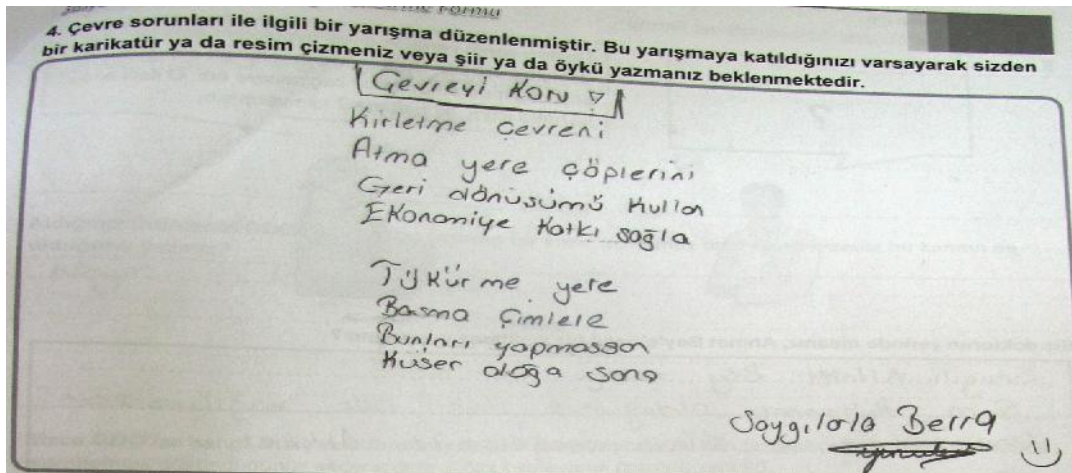 4. Çevre sorunları ile ilgili bir yarışma düzenlenmiştir. Bu yarışmaya katıldığınızı varsayarak sizden
bir karikatür ya da resim çizmeniz veya şiir ya da öykü yazmanız beklenmektedir.
Çevreyi Koru !
Kirletme çevreni
Atma yere çöplerini
Geri dönüşümü kullan
Ekonomiye katkı sağla
Tükürme yere
Basma çimlere
Bunları yapmassan
Küser doğa sana
Saygılarla Berra